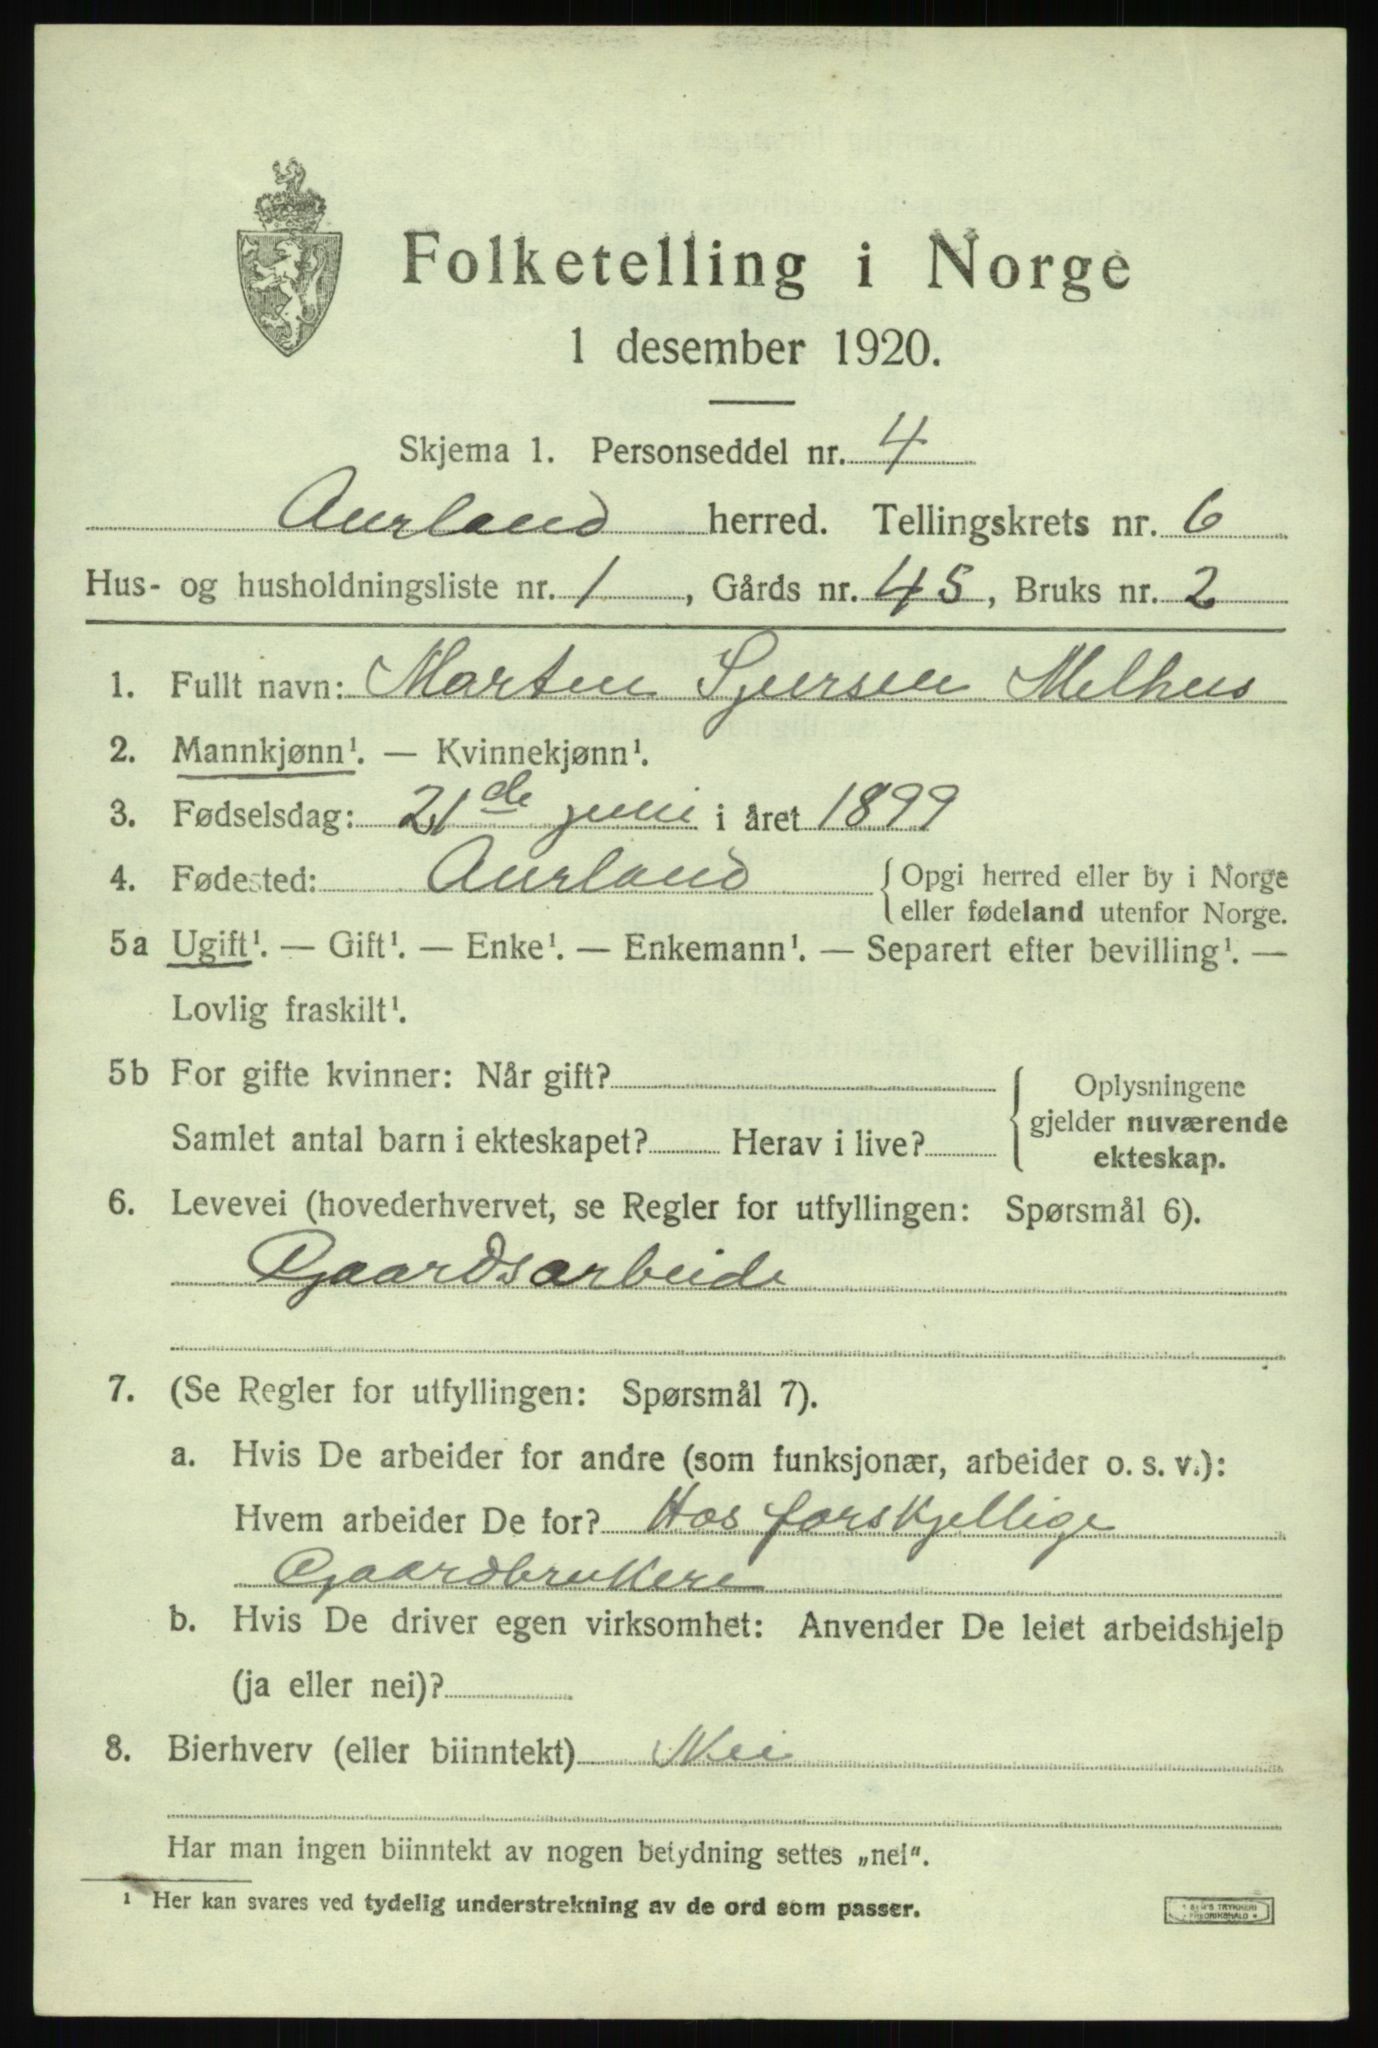 Folketelling i Norge
1 desember 1920.
Skjema 1. Personseddel nr. 4
Aurland herred. Tellingskrets nr. 6
Hus- og husholdningsliste nr. 1, Gårds nr. 45, Bruks nr. 2
1. Fullt navn: Marten Sjursen Melhus
2. Mannkjønn¹. — Kvinnekjønn¹.
3. Fødselsdag: 21de juni i året 1899
4. Fødested: Aurland { Opgi herred eller by i Norge
eller fødeland utenfor Norge.
5a Ugift¹. — Gift¹. — Enke¹. — Enkemann¹. — Separert efter bevilling¹. —
Lovlig fraskilt¹.
5b For gifte kvinner: Når gift? { Oplysningene
gjelder nuværende
Samlet antal barn i ekteskapet? Herav i live?
ekteskap.
6. Levevei (hovederhvervet, se Regler for utfyllingen: Spørsmål 6).
Gaardsarbeide
7. (Se Regler for utfyllingen: Spørsmål 7).
a. Hvis De arbeider for andre (som funksjonær, arbeider o. s. v.):
Hvem arbeider De for? Hos forskjellige
Gaardbrukere
b. Hvis De driver egen virksomhet: Anvender De leiet arbeidshjelp
(ja eller nei)?
8. Bierhverv (eller biinntekt) Nei
Har man ingen biinntekt av nogen betydning settes „nei“.
¹ Her kan svares ved tydelig understrekning av de ord som passer.
TRYKKERI
FREDRIKSHALD